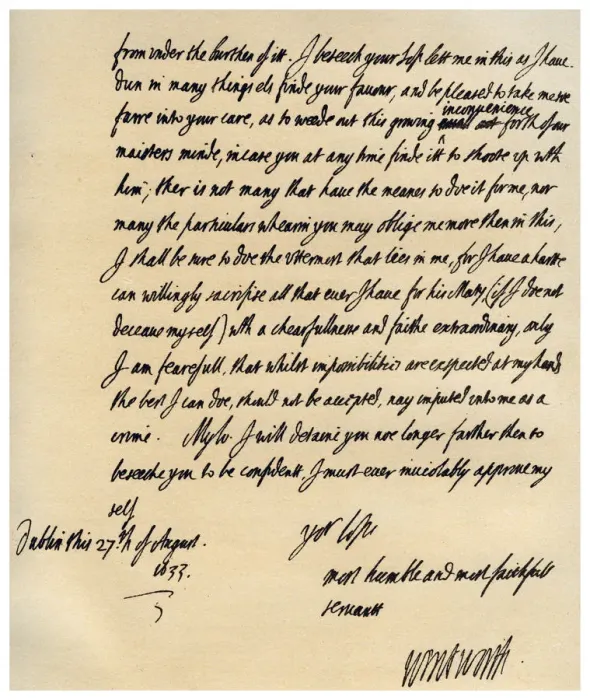 from under the burthen of itt. I beseech your Lopp lett me in this as I have
dun in many things els finde your favour, and be pleased to take me soe
farre into your care, as to weede out this growing inconvenience forth of our
maisters minde, in case you at any time finde itt to shoote up wth
him; ther is not many that have the means to doe it for me, nor
many the particulars whearin you may oblige me more then in this,
I shall be sure to doe the uttermost that lies in me, for I have a harte
can willingly sacrifise all that ever I have for his Maty, (if I doe not
deceave myself) wth a chearfullnesse and faithe extraordinary, only
I am fearefull, that whilst impossibilities are expected at my hands
the best I can doe, should not be accepted, nay imputed unto me as a
crime. My lo. I will detaine you noe longer farther then to
beseeche you to be confident, I must ever inviolably approve my
self
Dublin this 27.th of August.
1633.
yor Lops
most humble and most faithfull
servant
Wentworth.